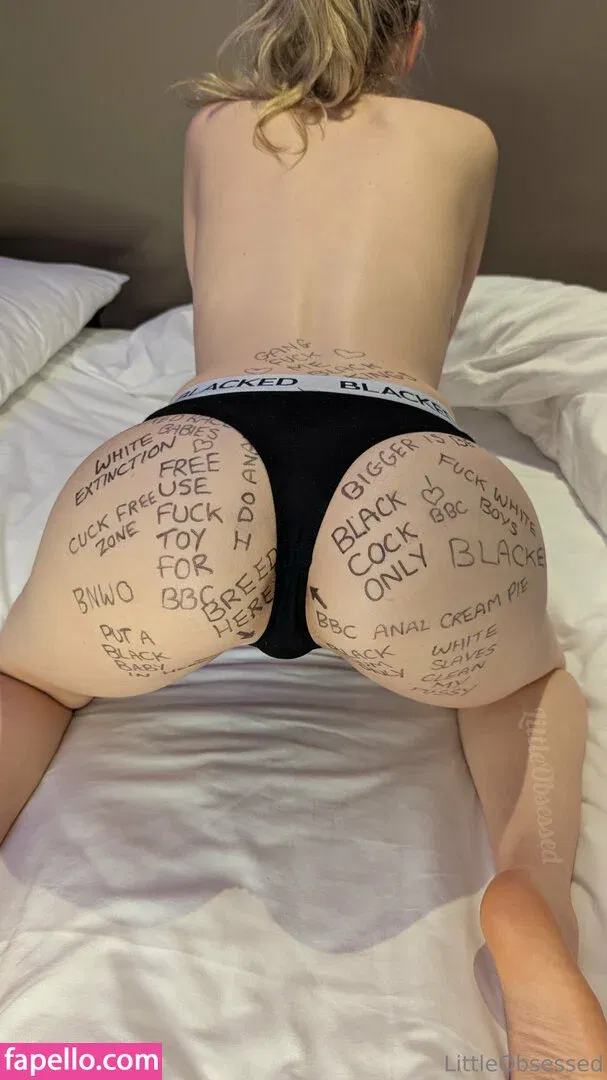 GANG
FUCK
ME
BLACK
KINGS
BLACKED BLACKED
BABIES
WHITE
EXTINCTION
FREE
USE
FUCK
TOY
FOR
BBC
I DO ANAL
CUCK FREE
ZONE
BNWO
BREED
HERE
PUT A
BLACK
BABY
IN
BIGGER IS
FUCK WHITE
BOYS
BBC
BLACK
COCK
ONLY
BLACKED
BBC ANAL CREAM PIE
BLACK
WHITE
SLAVES
CLEAN
MY
PUSSY
LittleObsessed
fapello.com
LittleObsessed